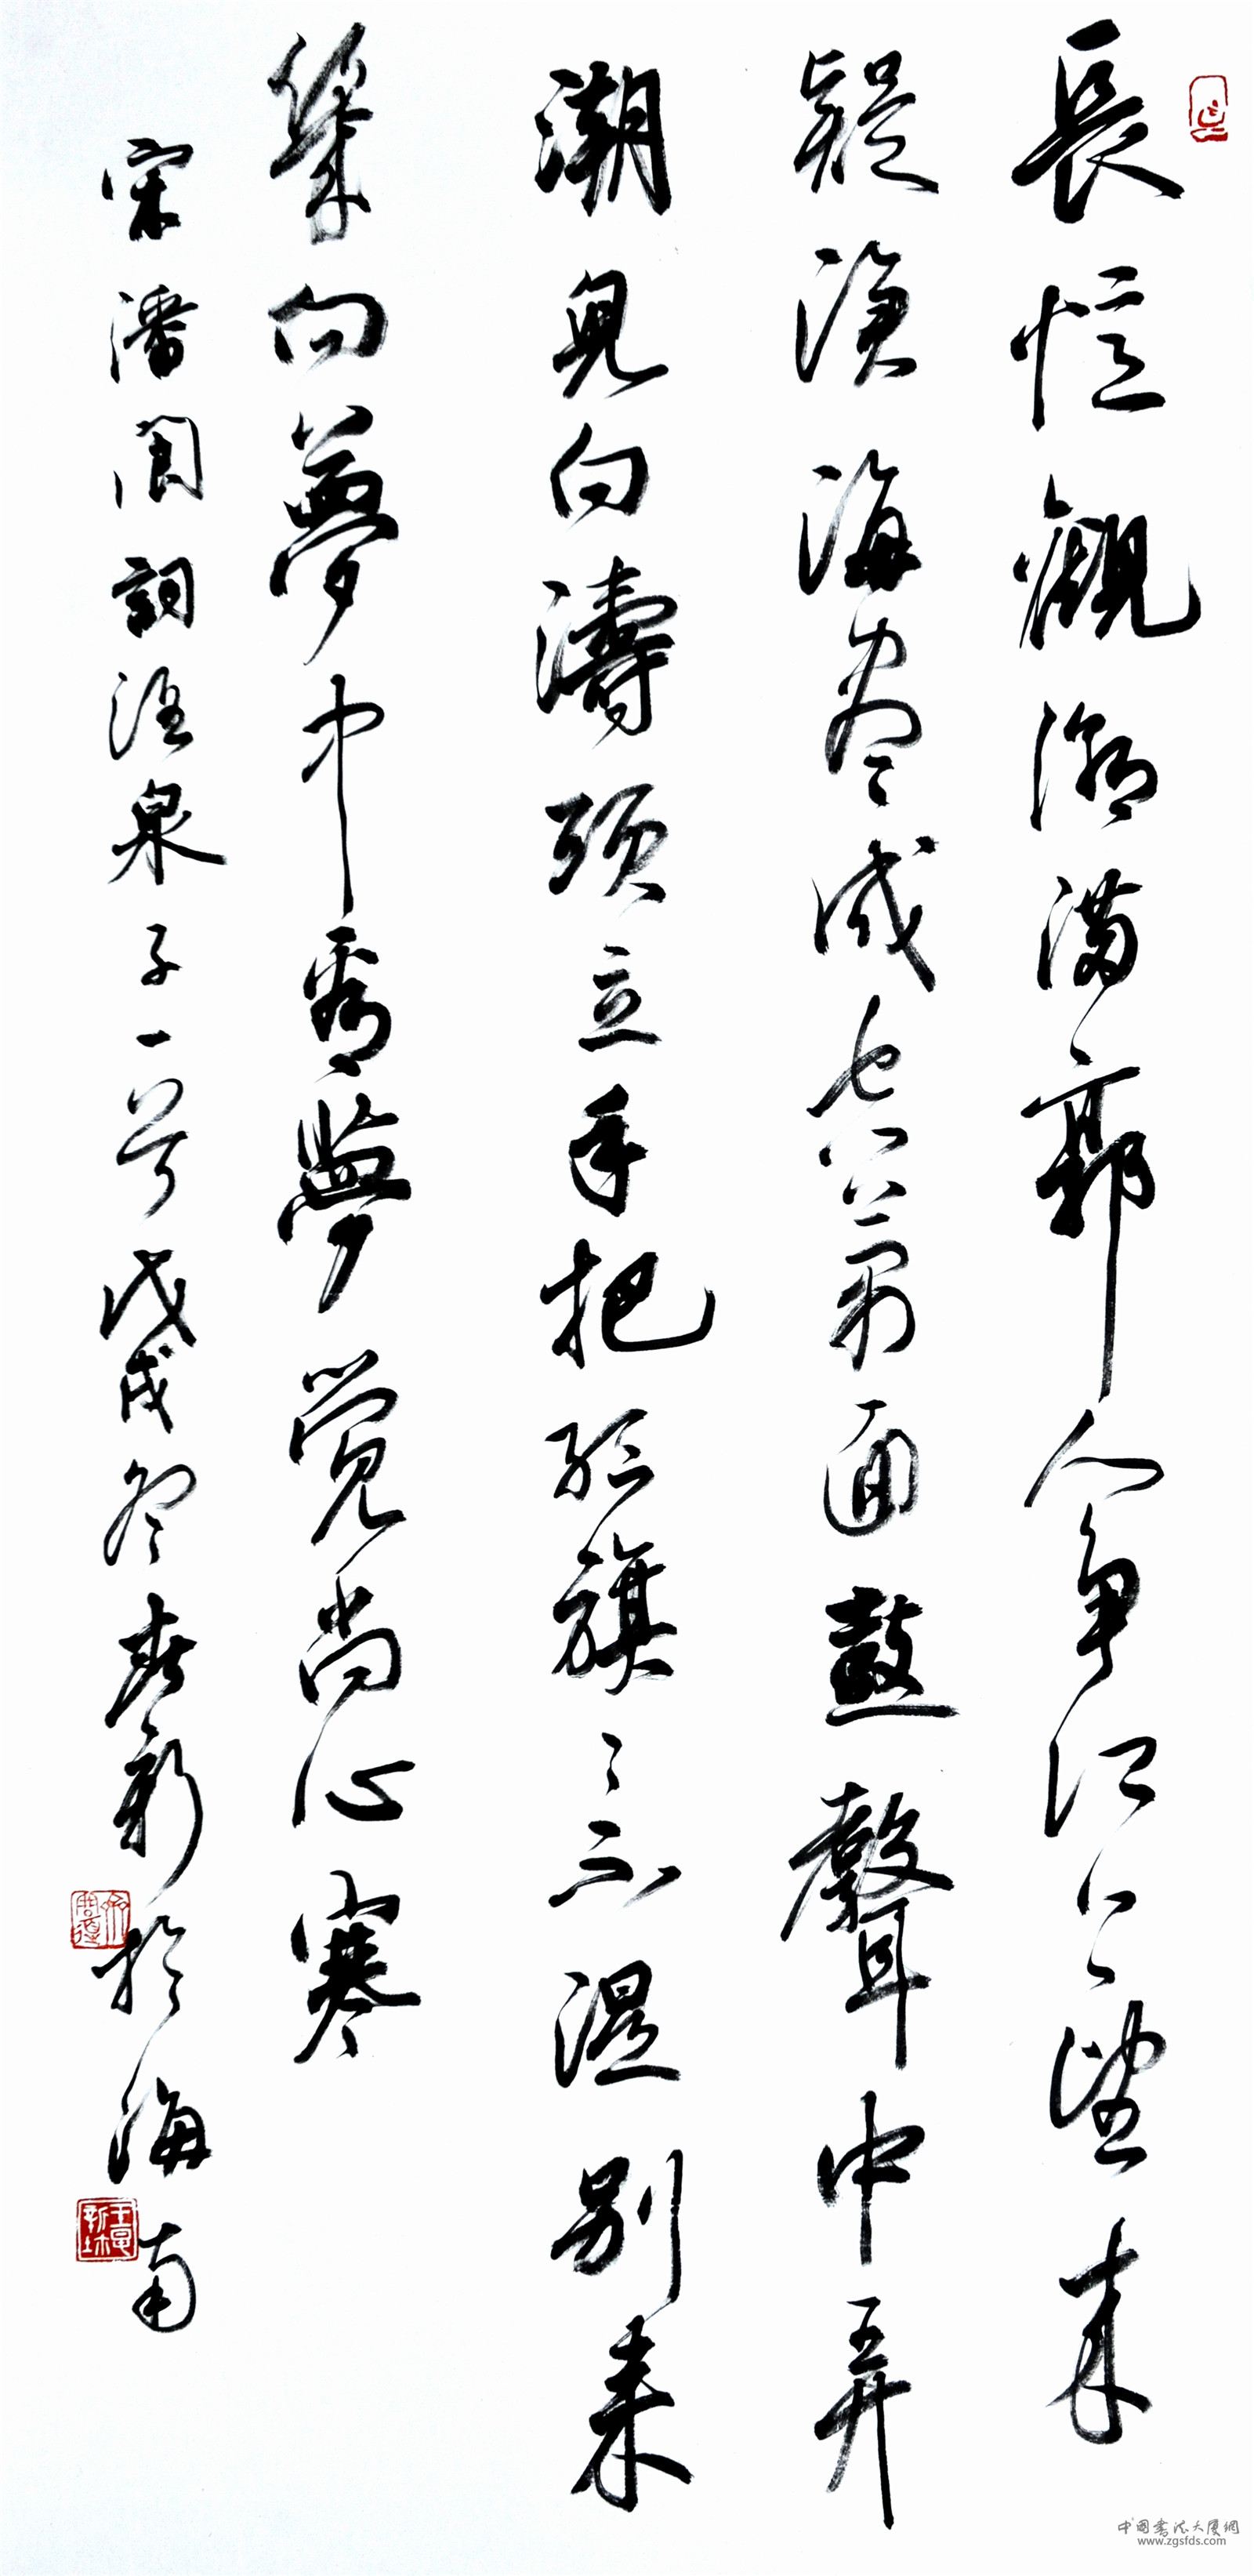 長憶觀潮滿郭人争江上望来
疑滄海盡成空萬面鼓聲中弄
潮兒向濤頭立手把紅旗〻不濕別来
幾向夢中看夢覺尚心寒
宋潘閬詞酒泉子一首戊戌冬新於海南
中國書法大廈網
www.zgsfds.com